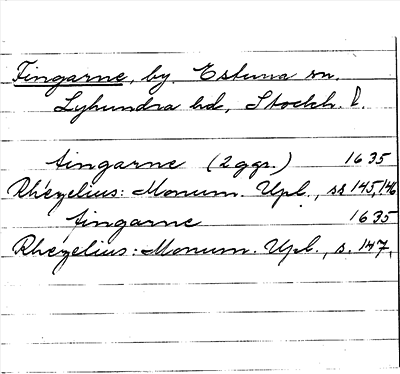 Fingarne, by. Estuna sn.
Lyhundra hd, Stockh. l.
tingarne (2 ggr.) 1635
Rhezelius: Monum. Upl., ss 145, 146
fingarne 1635
Rhezelius: Monum. Upl., s. 147.